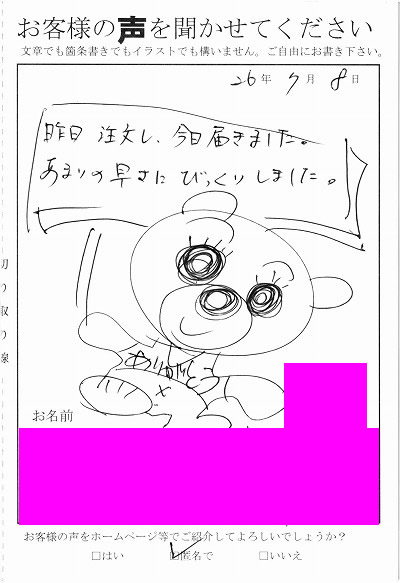 お客様の声を聞かせてください
文章でも箇条書きでもイラストでも構いません。ご自由にお書き下さい。
26年 9月 8日
昨日 注文し、今日届きました。
あまりの早さに びっくりしました。
ありがとう
切り取り線
お名前
お客様の声をホームページ等でご紹介してよろしいでしょうか?
□はい □匿名で □いいえ